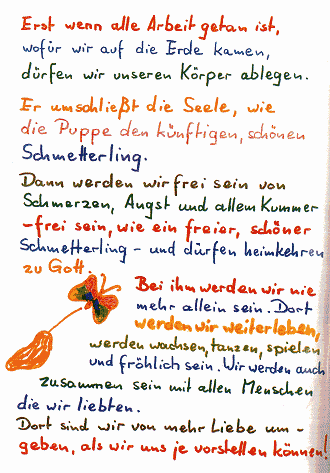 Erst wenn alle Arbeit getan ist,
wofür wir auf die Erde kamen,
dürfen wir unseren Körper ablegen.
Er umschließt die Seele, wie
die Puppe den künftigen, schönen
Schmetterling.
Dann werden wir frei sein von
Schmerzen, Angst und allem Kummer
-frei sein, wie ein freier, schöner
Schmetterling - und dürfen heimkehren
zu Gott.
Bei ihm werden wir nie
mehr allein sein. Dort
werden wir weiterleben,
werden wachsen, tanzen, spielen
und fröhlich sein. Wir werden auch
zusammen sein mit allen Menschen
die wir liebten.
Dort sind wir von mehr Liebe um-
geben, als wir uns je vorstellen können!